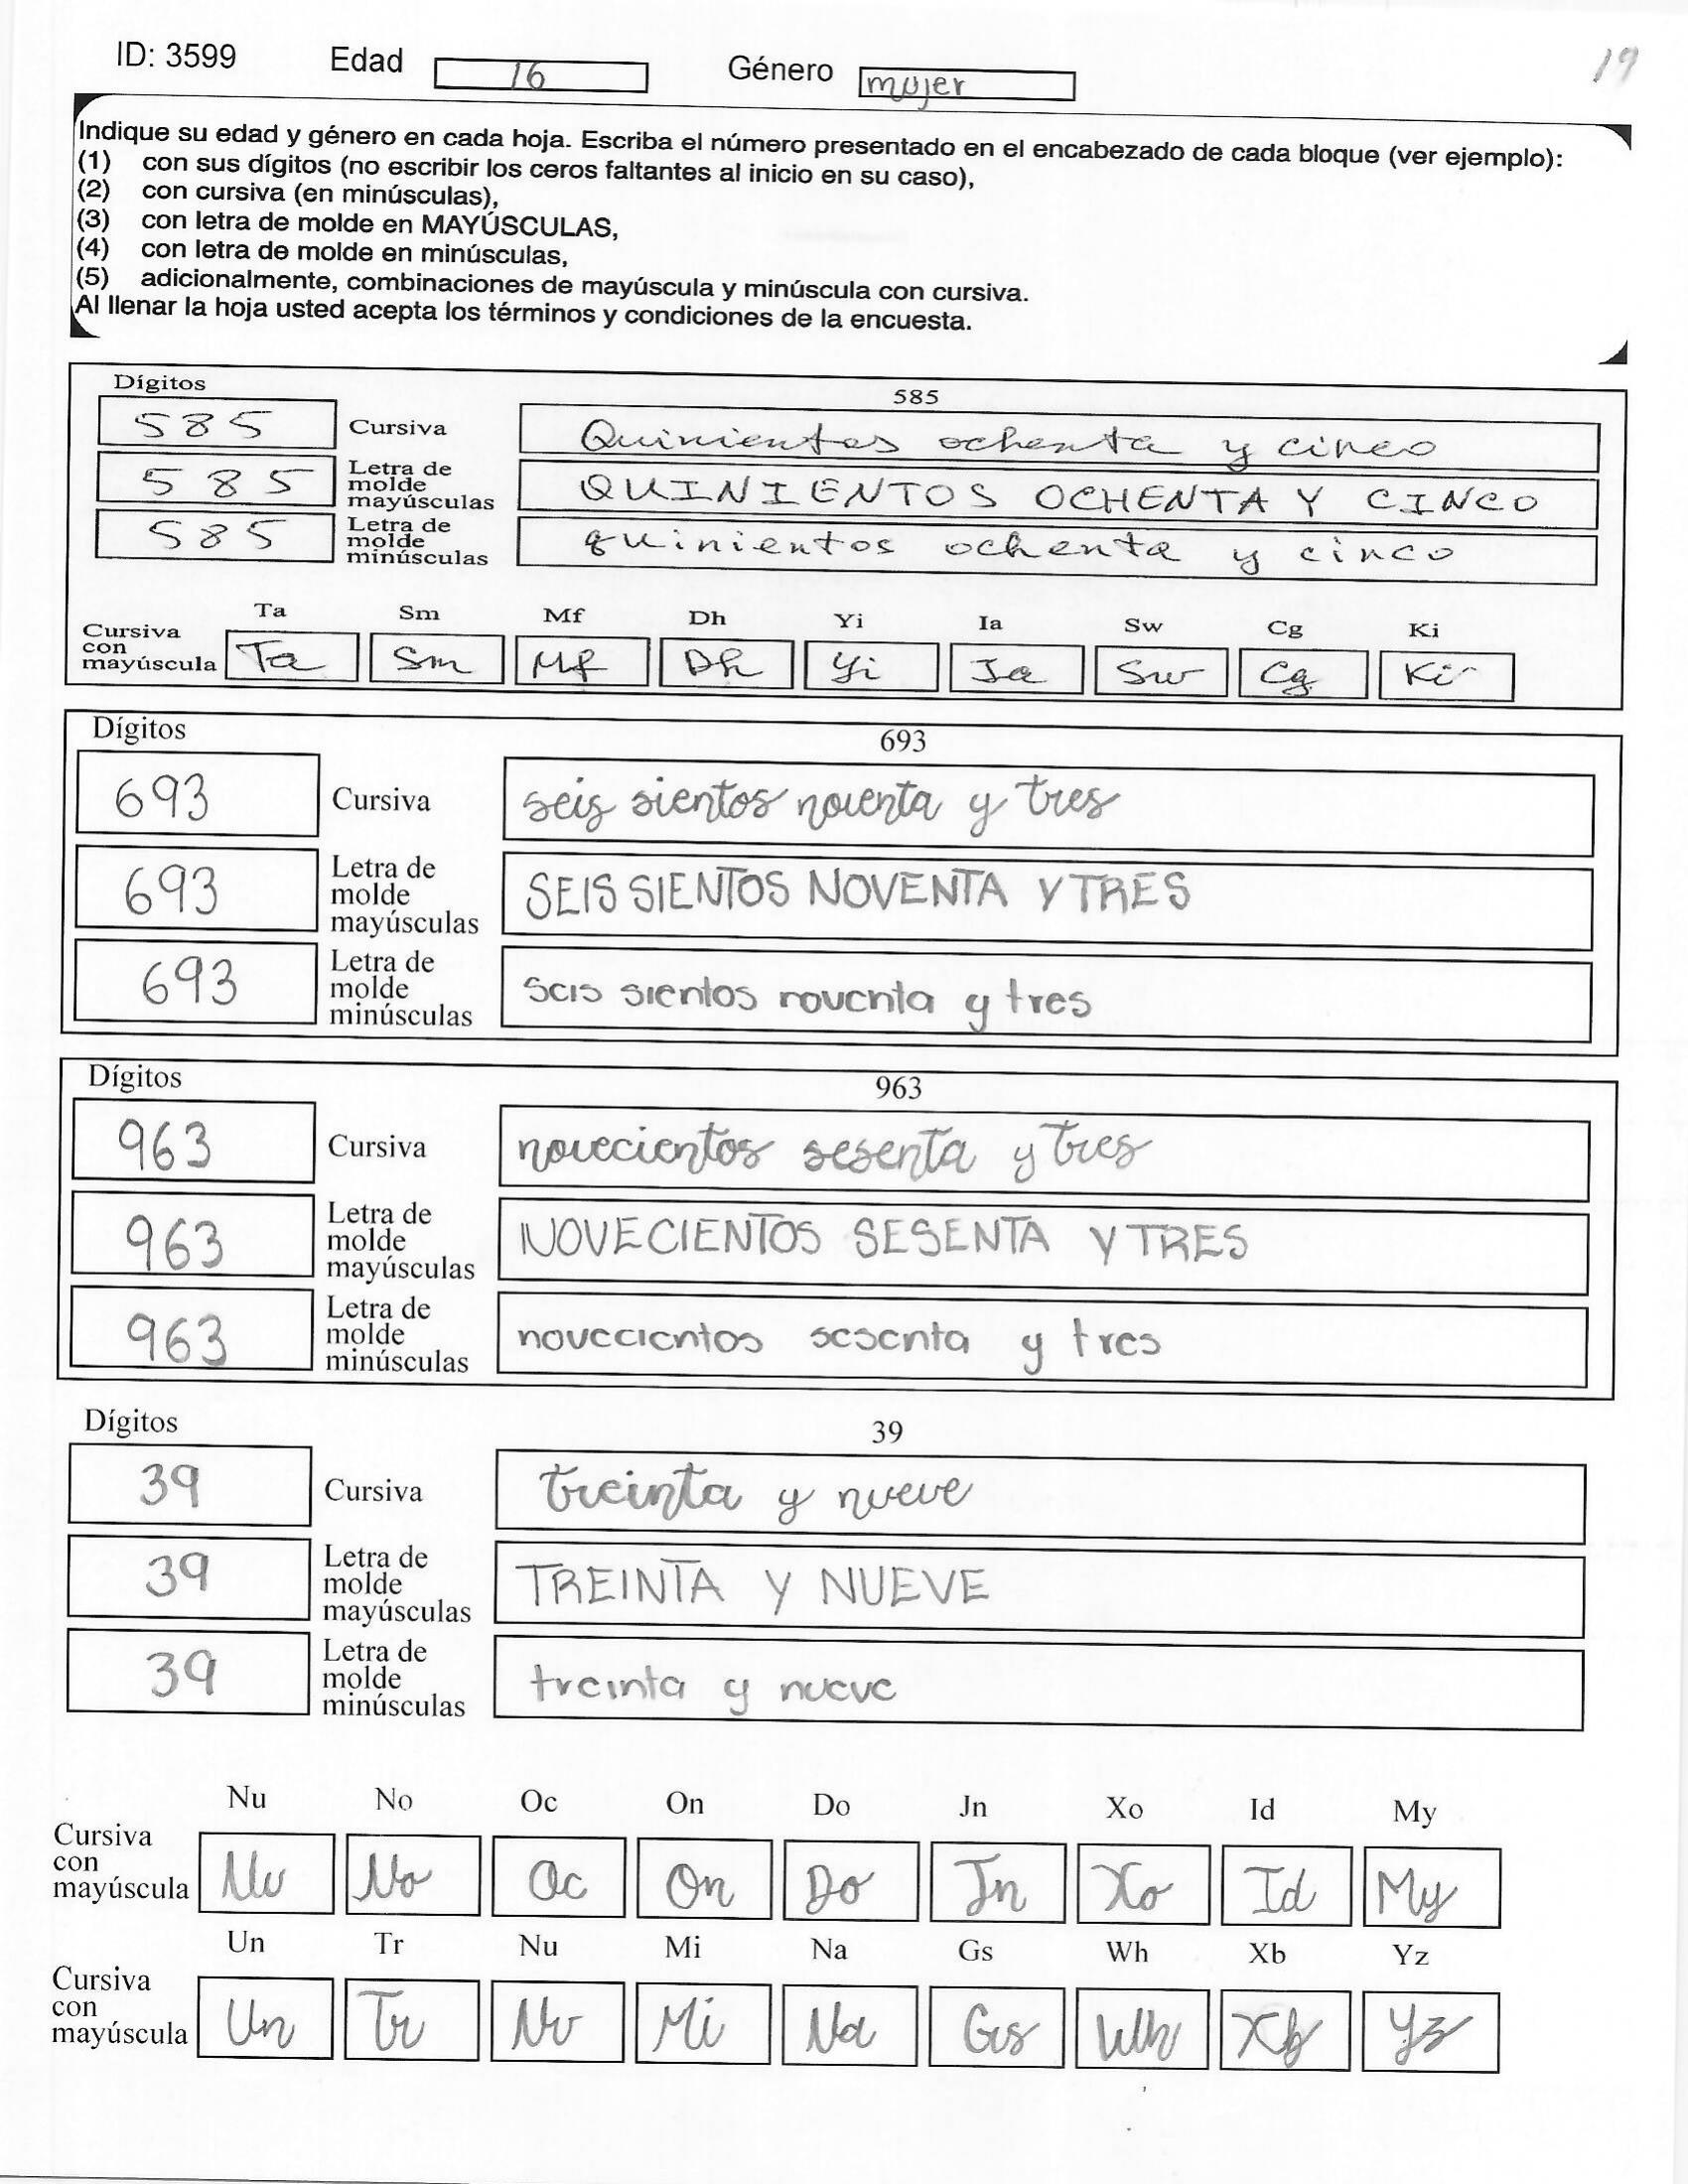 ID: 3599 Edad 16 Género mujer 19
Indique su edad y género en cada hoja. Escriba el número presentado en el encabezado de cada bloque (ver ejemplo):
(1) con sus dígitos (no escribir los ceros faltantes al inicio en su caso),
(2) con cursiva (en minúsculas),
(3) con letra de molde en MAYÚSCULAS,
(4) con letra de molde en minúsculas,
(5) adicionalmente, combinaciones de mayúscula y minúscula con cursiva.
Al llenar la hoja usted acepta los términos y condiciones de la encuesta.
Dígitos 585
585 Cursiva Quinientos ochenta y cinco
585 Letra de molde mayúsculas QUINIENTOS OCHENTA Y CINCO
585 Letra de molde minúsculas quinientos ochenta y cinco
Ta Sm Mf Dh Yi Ia Sw Cg Ki
Cursiva con mayúscula Ta Sm Mf Dh Yi Ia Sw Cg Ki
Dígitos 693
693 Cursiva seis sientos noventa y tres
693 Letra de molde mayúsculas SEIS SIENTOS NOVENTA Y TRES
693 Letra de molde minúsculas seis sientos noventa y tres
Dígitos 963
963 Cursiva novecientos sesenta y tres
963 Letra de molde mayúsculas NOVECIENTOS SESENTA Y TRES
963 Letra de molde minúsculas novecientos sesenta y tres
Dígitos 39
39 Cursiva treinta y nueve
39 Letra de molde mayúsculas TREINTA Y NUEVE
39 Letra de molde minúsculas treinta y nueve
Nu No Oc On Do Jn Xo Id My
Cursiva con mayúscula Nu No Oc On Do Jn Xo Id My
Un Tr Nu Mi Na Gs Wh Xb Yz
Cursiva con mayúscula Un Tr Nu Mi Na Gs Wh Xb Yz